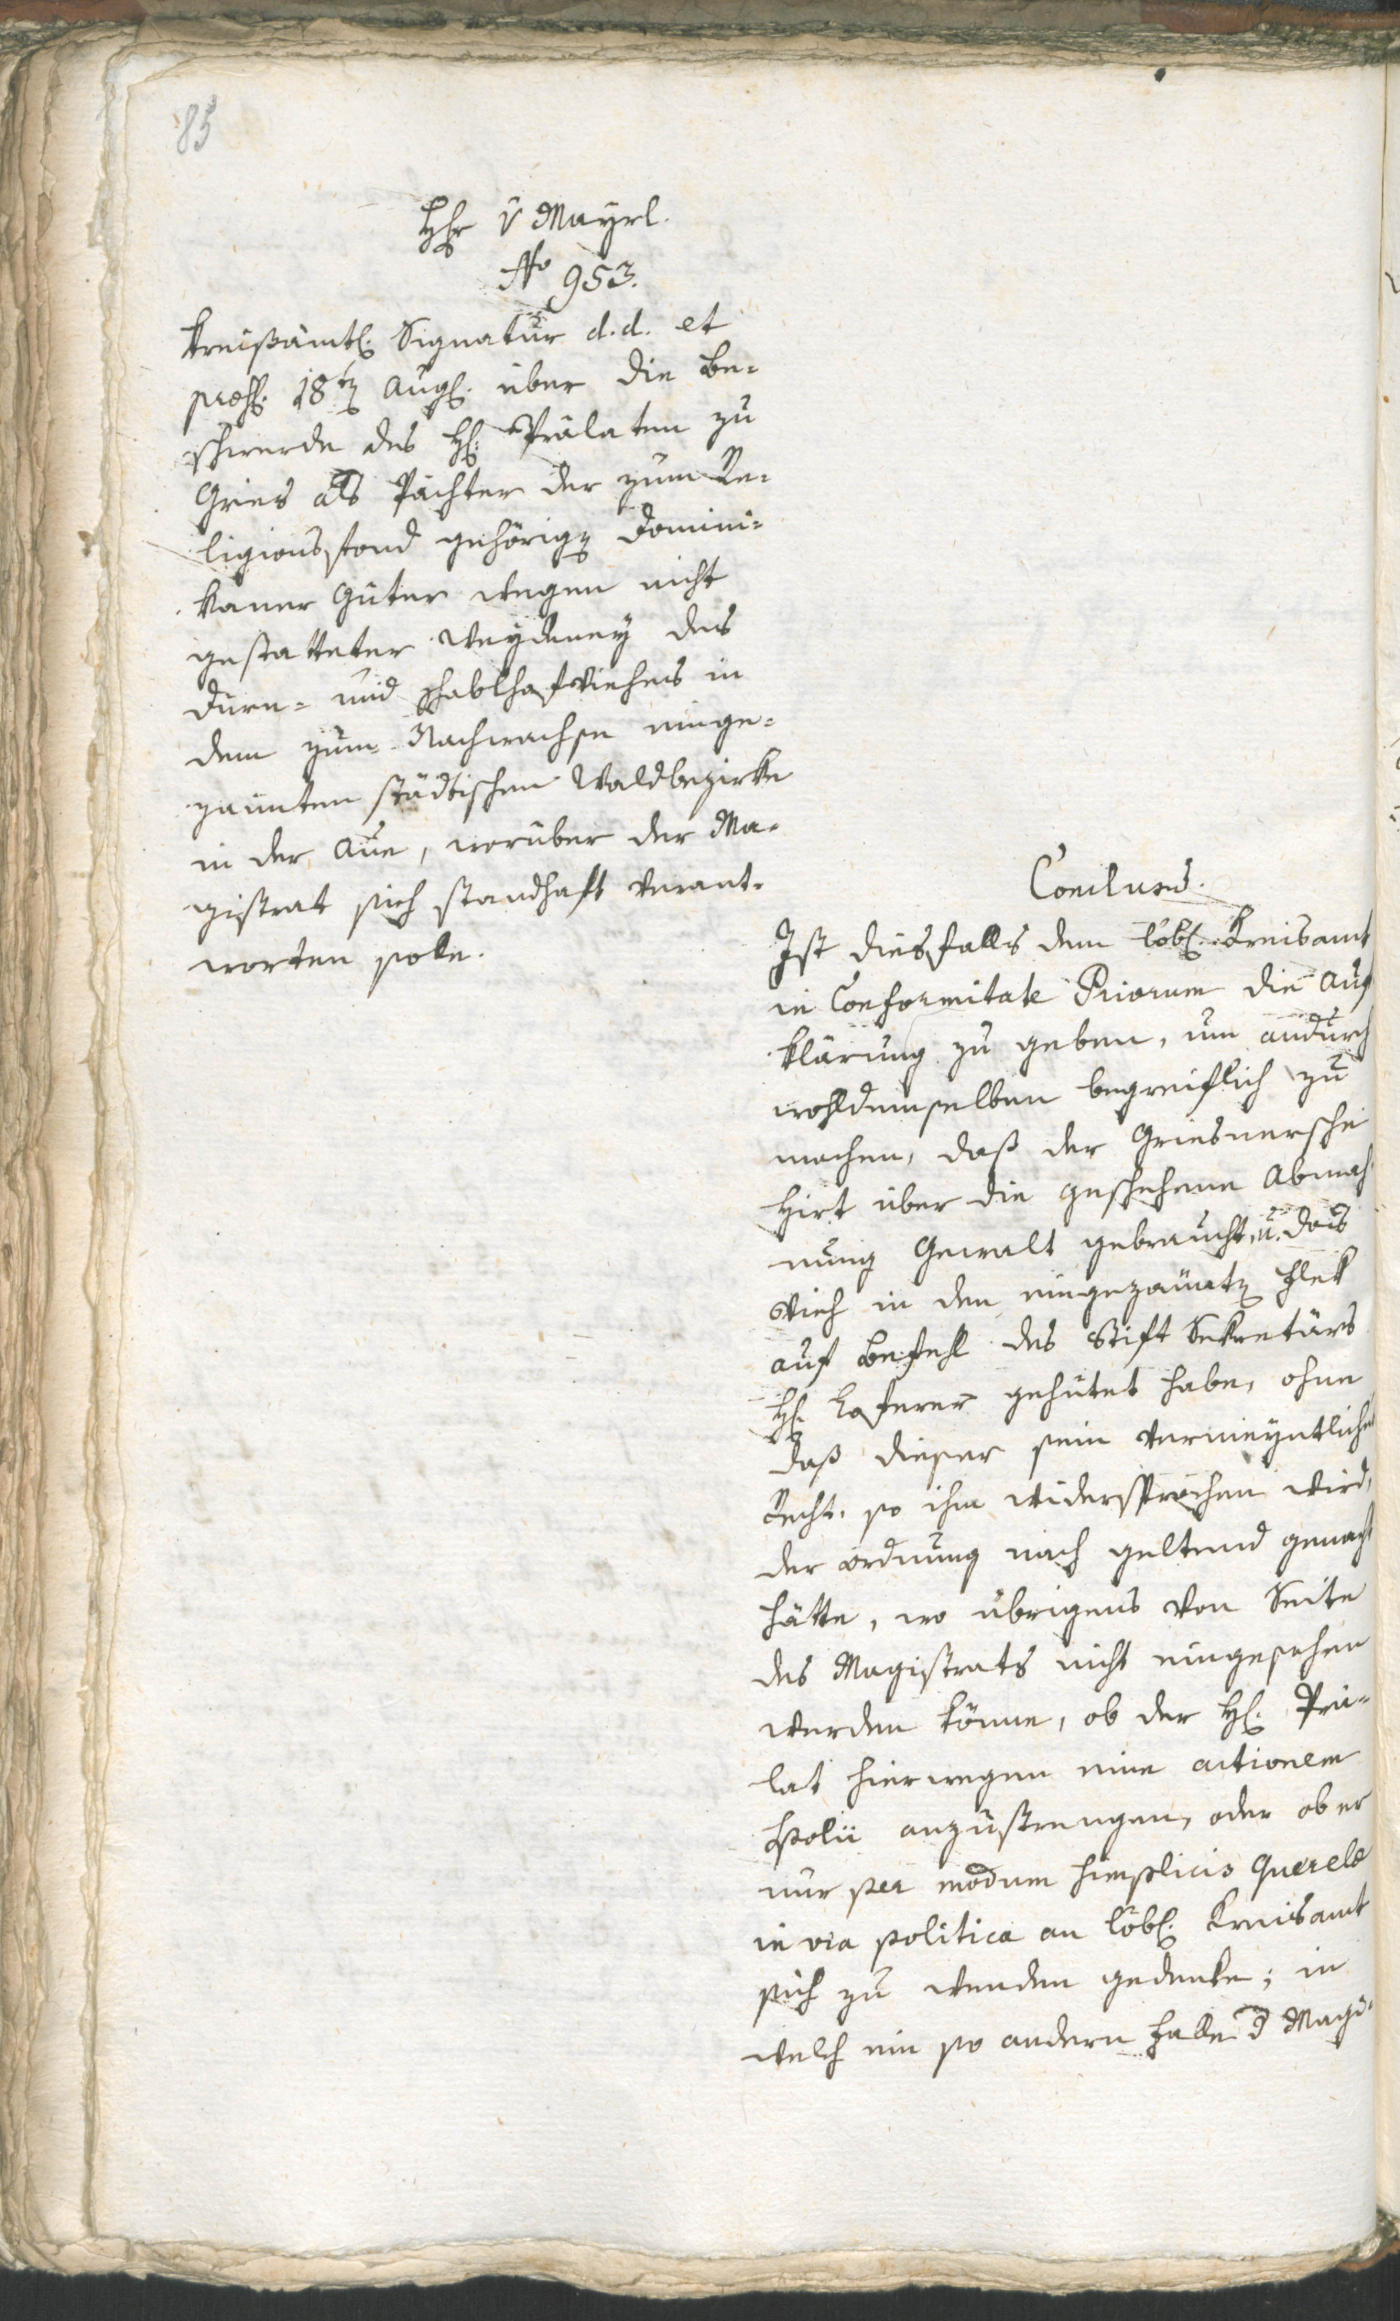 85
Hr v Mayrl.
No 953.
Kreißämtl. Signatur d.d. et
præs. 18ten Aug. über die Be-
schwerde des H. Prälaten zu
Gries als Pächter der zum Re-
ligionsfond gehörigen Domini-
kaner Güter wegen nicht
gestatteter Weydeney des
Dürn- und viehes in
dem zum Nachwachse einge-
zäunten städtischen Waldbezirke
in der Aue, worüber der Ma-
gistrat sich standhaft verant-
worten solle.
Conclusu.
Ist diesfalls dem löbl. Kreisamt
in Conformitate Priorum die Auf
klärung zu geben, um andurch
wohldemselben begreiflich zu
machen, daß der Griesnersche
Hirt über die geschehene Abmah
nung Gewalt gebraucht, u. das
Vieh in den eingezäunten Flek
auf Befehl des Stift Sekretärs
H. Laferer gehütet habe, ohne
daß dieser sein vermeyntliches
Recht, so ihm widersprochen wird,
der Ordnung nach geltend gemacht
hätte, wo übrigens von Seite
des Magistrats nicht eingesehen
werden könne, ob der H. Prä-
lat hierwegen eine actionem
spolii anzustrengen, oder ob er
nur per modum simplicis Querelæ
in via politica an löbl. Kreisamt
sich zu wenden gedenke; in
welch ein so andern Falle d Magi-